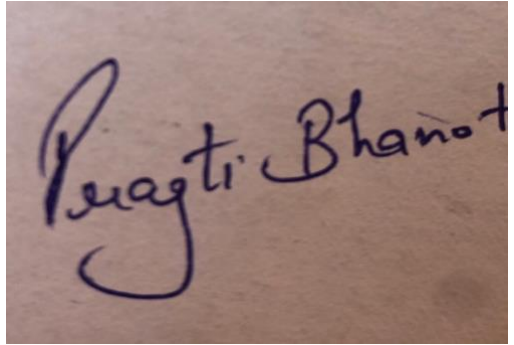 Pragti Bhanot